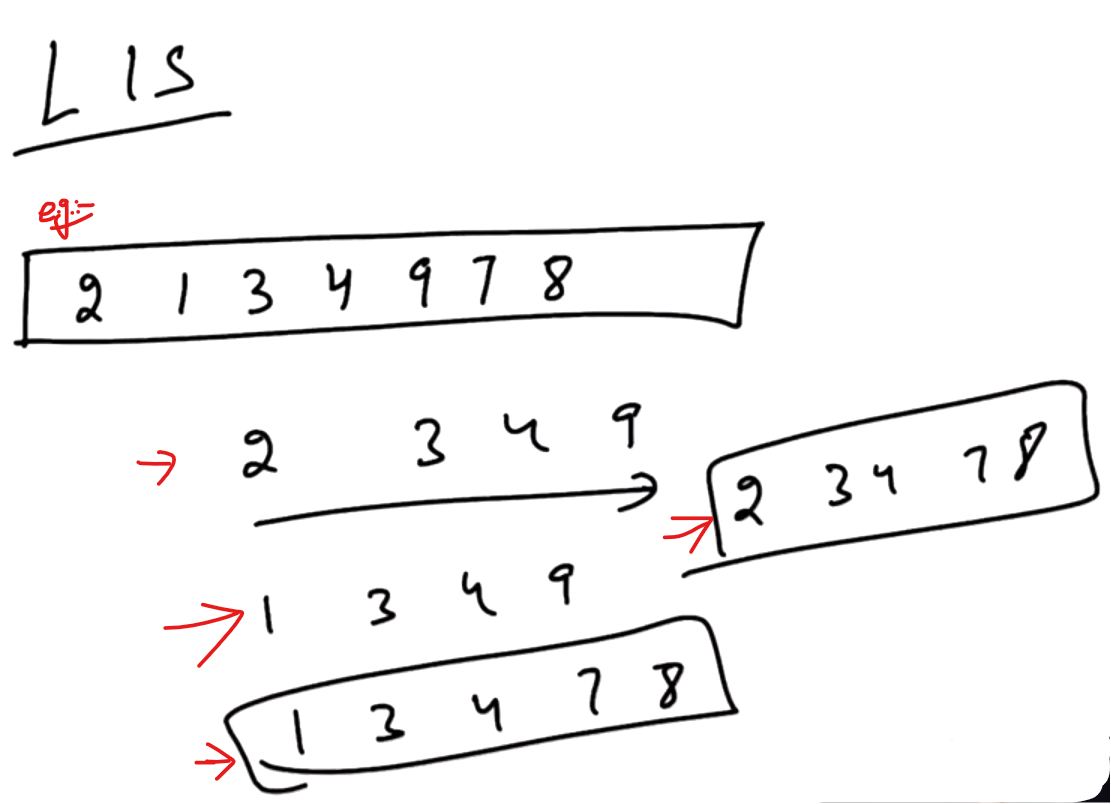 LIS
eg:-
2 1 3 4 9 7 8
→ 2 3 4 9
→ 2 3 4 7 8
→ 1 3 4 9
→ 1 3 4 7 8